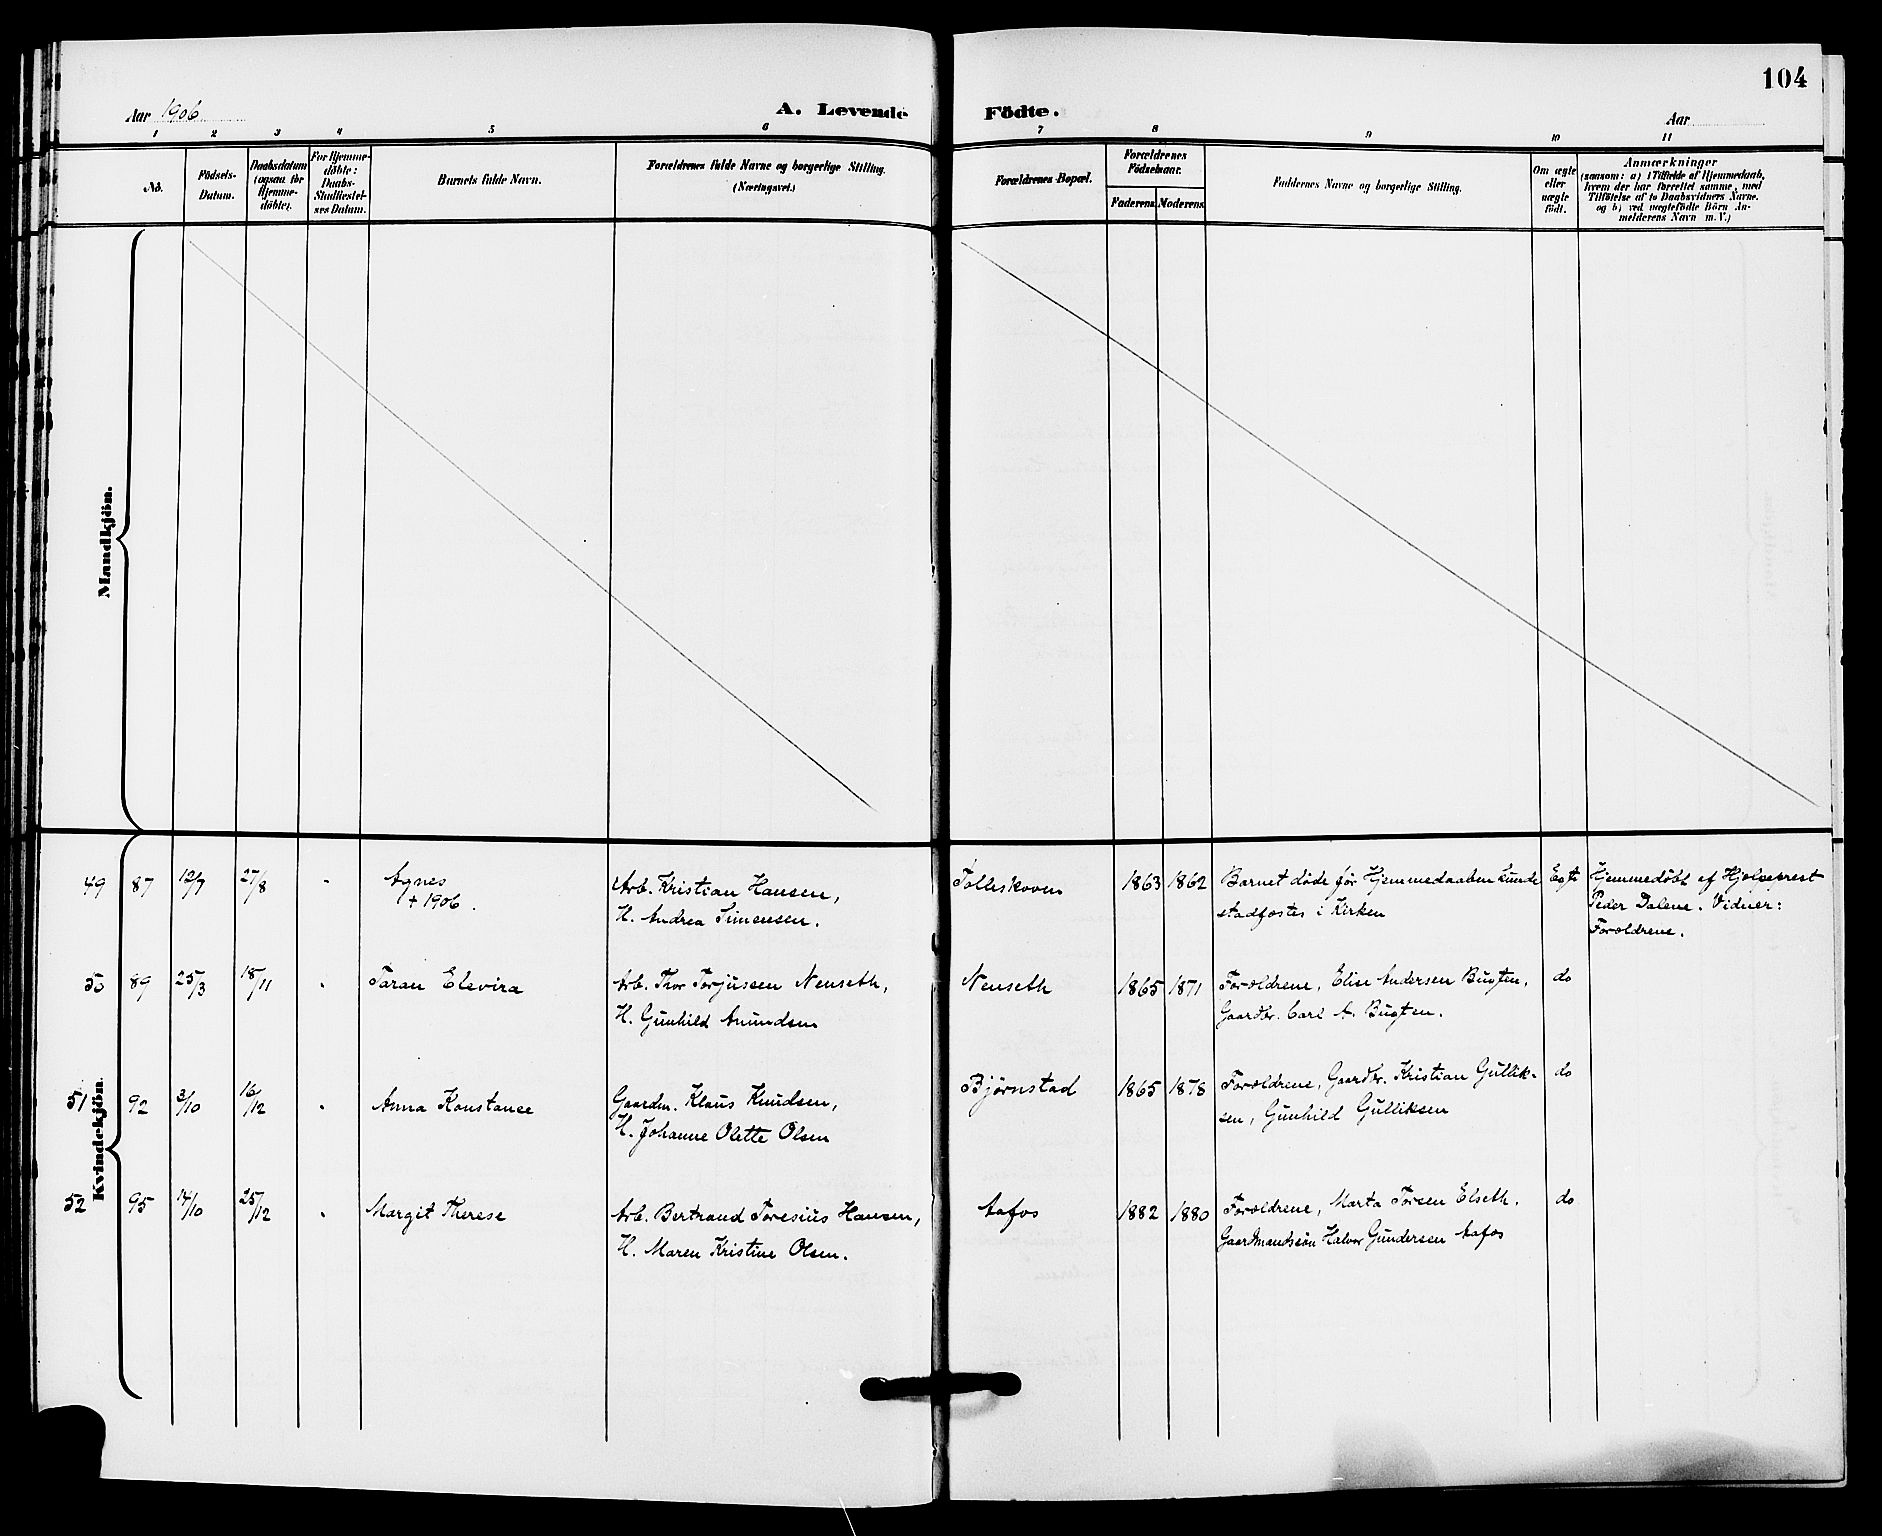 104
Aar 1906
A. Levende Födte.
Aar
1 2 3 4 5 6 7 8 9 10 11
No.
Födsels-
Datum.
Daabsdatum
(ogsaa for
Hjemme-
döbte).
For Hjemme-
döbte:
Daabs-
Stadfæstel-
ses Datum.
Barnets fulde Navn.
Forældrenes fulde Navne og borgerlige Stilling.
(Næringsvei.)
Forældrenes Bopæl.
Forældrenes
Födselsaar.
Faderens. Moderens.
Faddernes Navne og borgerlige Stilling.
Om ægte
eller
uægte
födt.
Anmærkninger
(saasom: a) i Tilfælde af Hjemmedaab,
hvem der har forrettet samme, med
Tilföielse af to Daabsvidners Navne.
og b) ved uægtefödte Börn An-
melderens Navn m. V.)
Mandkjön.
Kvindekjön.
49 87 12/7 27/8 " Agnes
† 1906.
Arb. Kristian Hansen,
H. Andrea Simensen.
Tolliskoven 1863 1862
Barnet døde før Hjemmedaaben kunde
stadfæstes i Kirken
Egte
Hjemmedøbt af Hjelpeprest
Peder Dalene. Vidner:
Forældrene.
50 89 25/3 18/11 " Taran Elevira
Arb. Thor Torjussen Nenseth,
H. Gunhild Amundsen
Nenseth 1865 1871
Forældrene, Elise Andersen Bugten,
Gaardbr. Carl A. Bugten.
do
51 92 3/10 16/12 " Anna Konstance
Gaardm. Klaus Knudsen,
H. Johanne Olette Olsen
Bjørnstad 1865 1878
Forældrene, Gaardbr. Kristian Gullik-
sen, Gunhild Gulliksen
do
52 95 14/10 25/12 " Margit Therese
Arb. Bertrand Toresius Hansen,
H. Maren Kristine Olsen.
Aafos 1882 1880
Forældrene, Marta Torsen Elseth.
Gaardmandssøn Halvor Gundersen Aafos
do